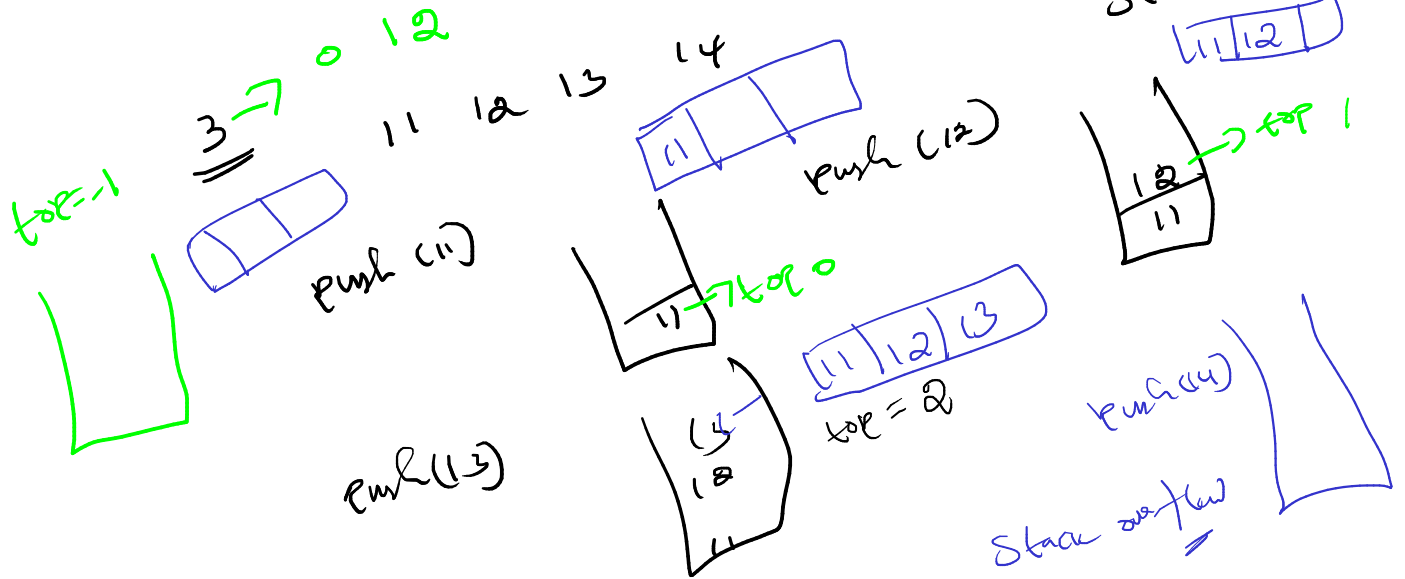 3 → 0 1 2
11 12 13 14
top=-1
push (11)
11
11 → top 0
push (12)
11 12
12 → top 1
11
push(13)
13
12
11
11 12 13
top = 2
push(14)
Stack overflow